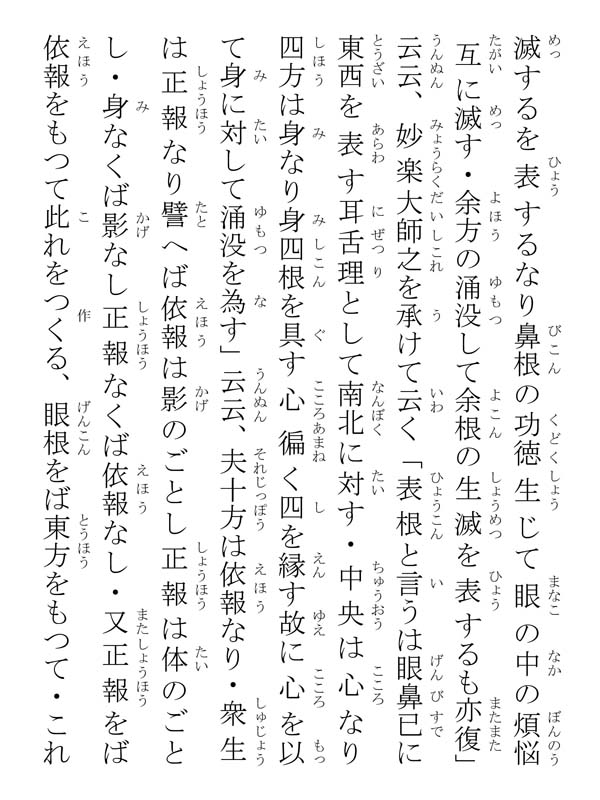 滅するを表するなり鼻根の功徳生じて眼の中の煩悩
互に滅す・余方の涌没して余根の生滅を表するも亦復」
云云、妙楽大師之を承けて云く「表根と言うは眼鼻已に
東西を表す耳舌理として南北に対す・中央は心なり
四方は身なり身四根を具す心徧く四を縁す故に心を以
て身に対して涌没を為す」云云、夫十方は依報なり・衆生
は正報なり譬へば依報は影のごとし正報は体のごと
し・身なくば影なし正報なくば依報なし・又正報をば
依報をもつて此れをつくる、眼根をば東方をもつて・これ